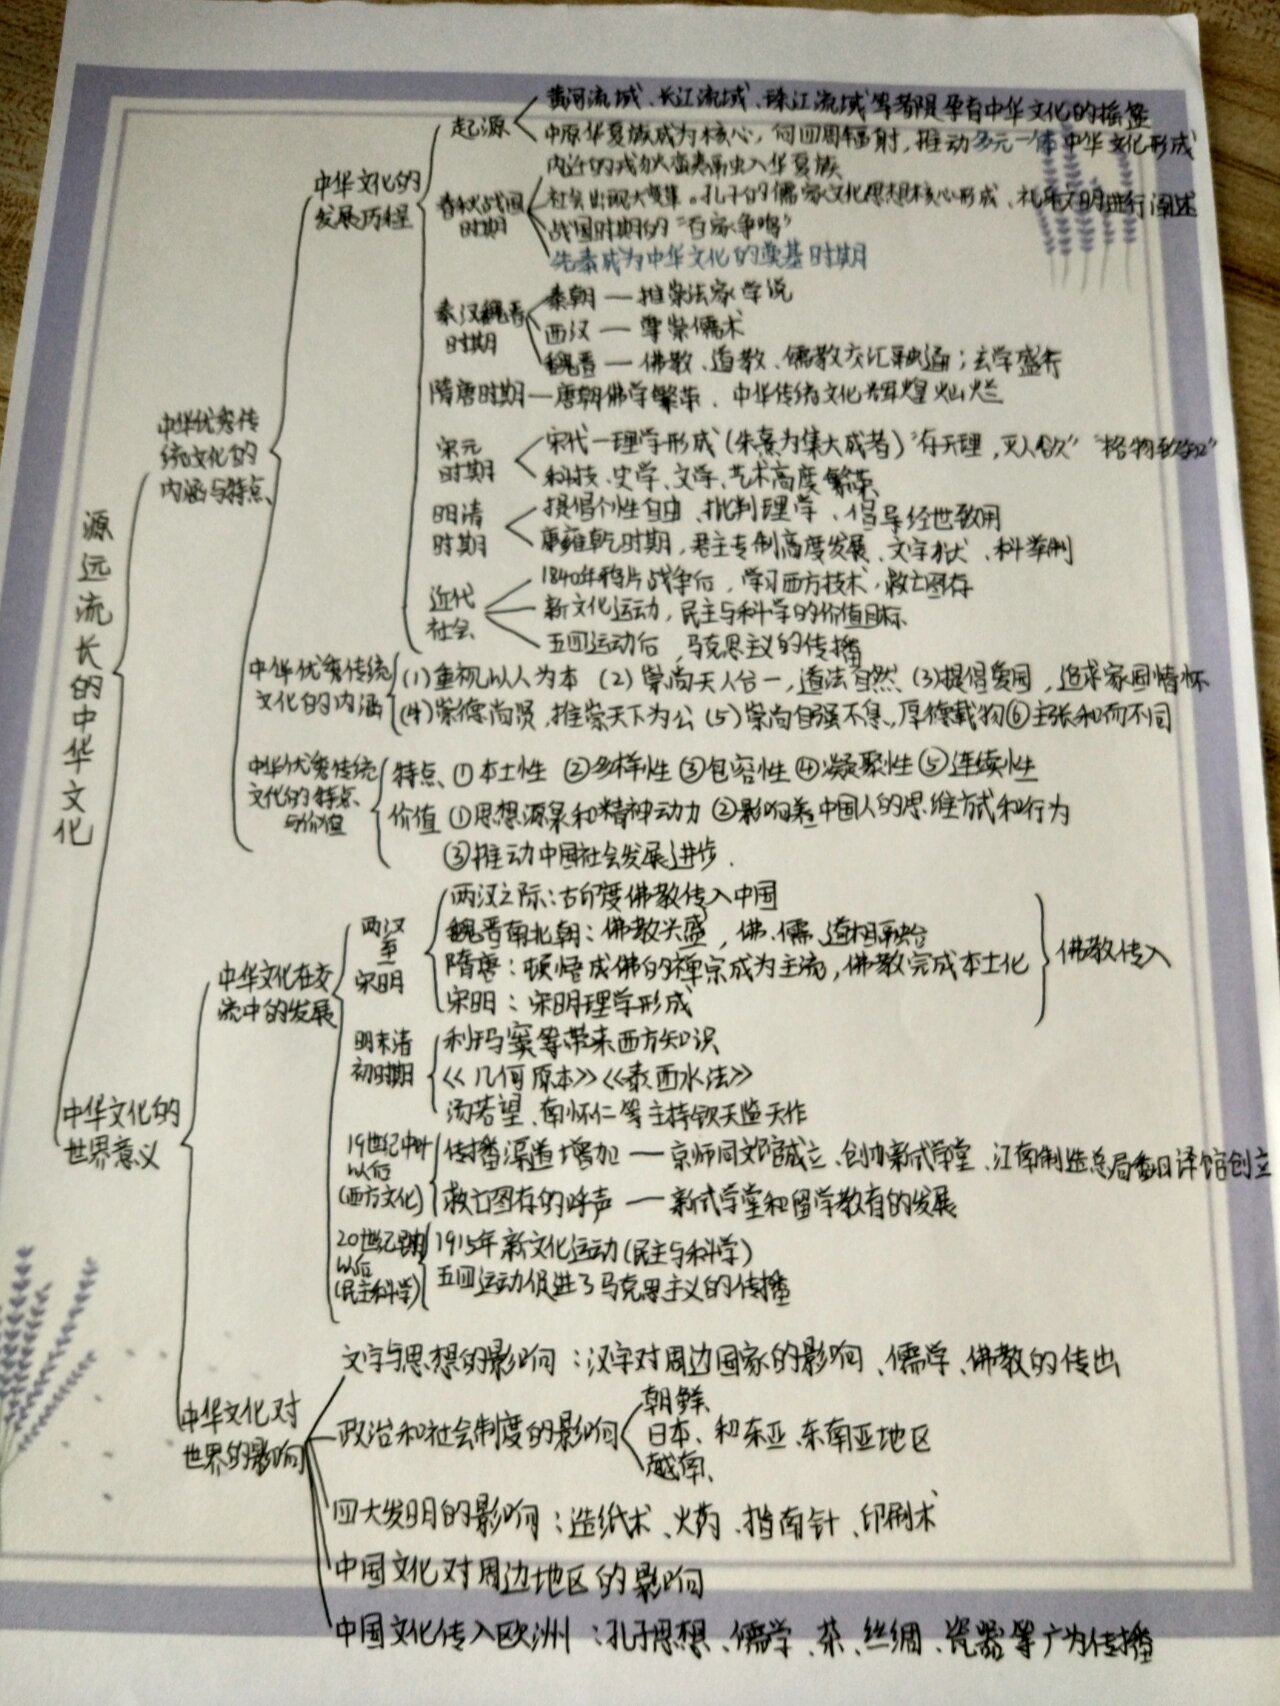 源远流长的中华文化
中华优秀传
统文化的
内涵与特点
中华文化的
发展历程
起源
黄河流域、长江流域、珠江流域等都是孕育中华文化的摇篮
中原华夏族成为核心，向四周辐射，推动多元一体中华文化形成
春秋战国
时期
内迁的戎狄蛮夷融入华夏族
社会出现大变革。孔子的儒家文化思想核心形成、礼乐文明进行阐述
战国时期的“百家争鸣”
先秦成为中华文化的奠基时期
秦汉魏晋
时期
秦朝—推崇法家学说
西汉—尊崇儒术
魏晋—佛教、道教、儒教交汇融通；玄学盛行
隋唐时期—唐朝佛学繁荣、中华传统文化辉煌灿烂
宋元
时期
宋代—理学形成(朱熹为集大成者)“存天理，灭人欲”“格物致知”
科技、史学、文学、艺术高度繁荣
明清
时期
提倡个性自由、批判理学、倡导经世致用
康雍乾时期，君主专制高度发展、文字狱、科举制
近代
社会
1840年鸦片战争后，学习西方技术，救亡图存
新文化运动，民主与科学的价值目标
五四运动后，马克思主义的传播
中华优秀传统
文化的内涵
(1)重视以人为本 (2)崇尚天人合一，道法自然 (3)提倡爱国，追求家国情怀
(4)崇德尚贤，推崇天下为公 (5)崇尚自强不息，厚德载物⑥主张和而不同
中华优秀传统
文化的特点
与价值
特点、①本土性 ②多样性 ③包容性 ④凝聚性 ⑤连续性
价值 ①思想源泉和精神动力 ②影响着中国人的思维方式和行为
③推动中国社会发展进步.
中华文化的
世界意义
中华文化在交
流中的发展
两汉
至
宋明
两汉之际：古印度佛教传入中国
魏晋南北朝：佛教兴盛，佛、儒、道相融合
隋唐：顿悟成佛的禅宗成为主流，佛教完成本土化
宋明：宋明理学形成
佛教传入
明末清
初时期
利玛窦等带来西方知识
《几何原本》《泰西水法》
汤若望、南怀仁等主持钦天监天作
19世纪中叶
以后
(西方文化)
传播渠道增加—京师同文馆成立、创办新式学堂、江南制造总局翻译馆创立
救亡图存的呼声—新式学堂和留学教育的发展
20世纪初
以后
(民主科学)
1915年新文化运动(民主与科学)
五四运动促进了马克思主义的传播
中华文化对
世界的影响
文字与思想的影响：汉字对周边国家的影响、儒学、佛教的传出
政治和社会制度的影响
朝鲜、
日本、和东亚、东南亚地区
越南、
四大发明的影响：造纸术、火药、指南针、印刷术
中国文化对周边地区的影响
中国文化传入欧洲：孔子思想、儒学、茶、丝绸、瓷器等广为传播